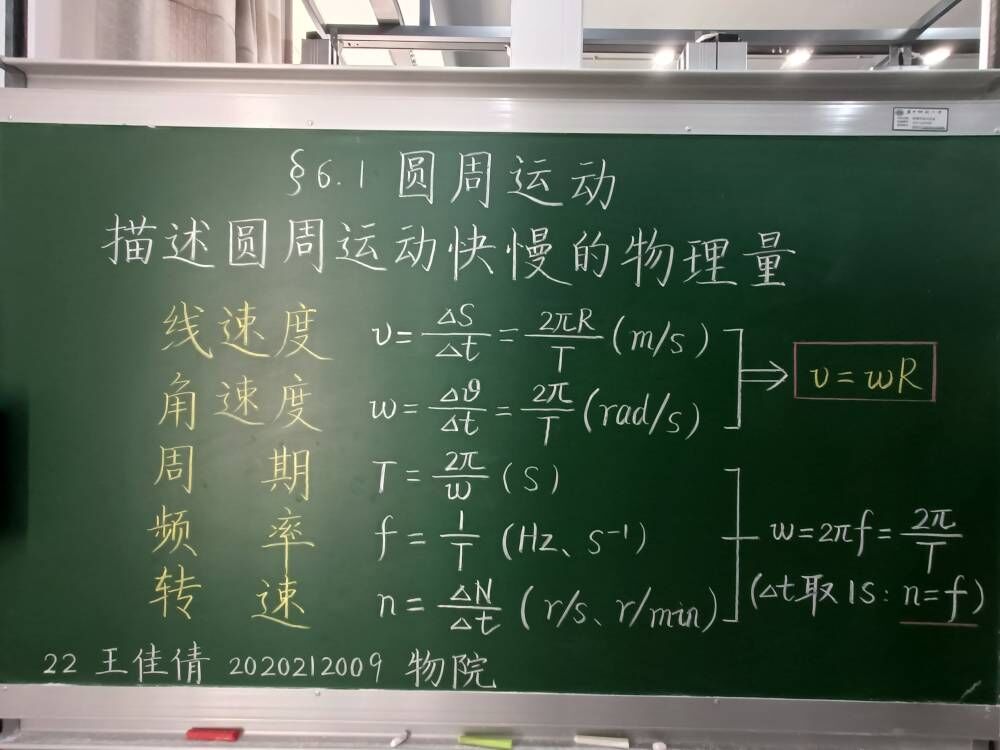 §6.1 圆周运动
描述圆周运动快慢的物理量
线速度 v=ΔS/Δt=2πR/T(m/s)
角速度 w=Δϑ/Δt=2π/T(rad/s)
v=wR
周期 T=2π/w(S)
频率 f=1/T(Hz、s⁻¹)
转速 n=ΔN/Δt(r/s、r/min)
w=2πf=2π/T
(Δt取1S:n=f)
22 王佳倩 2020212009 物院